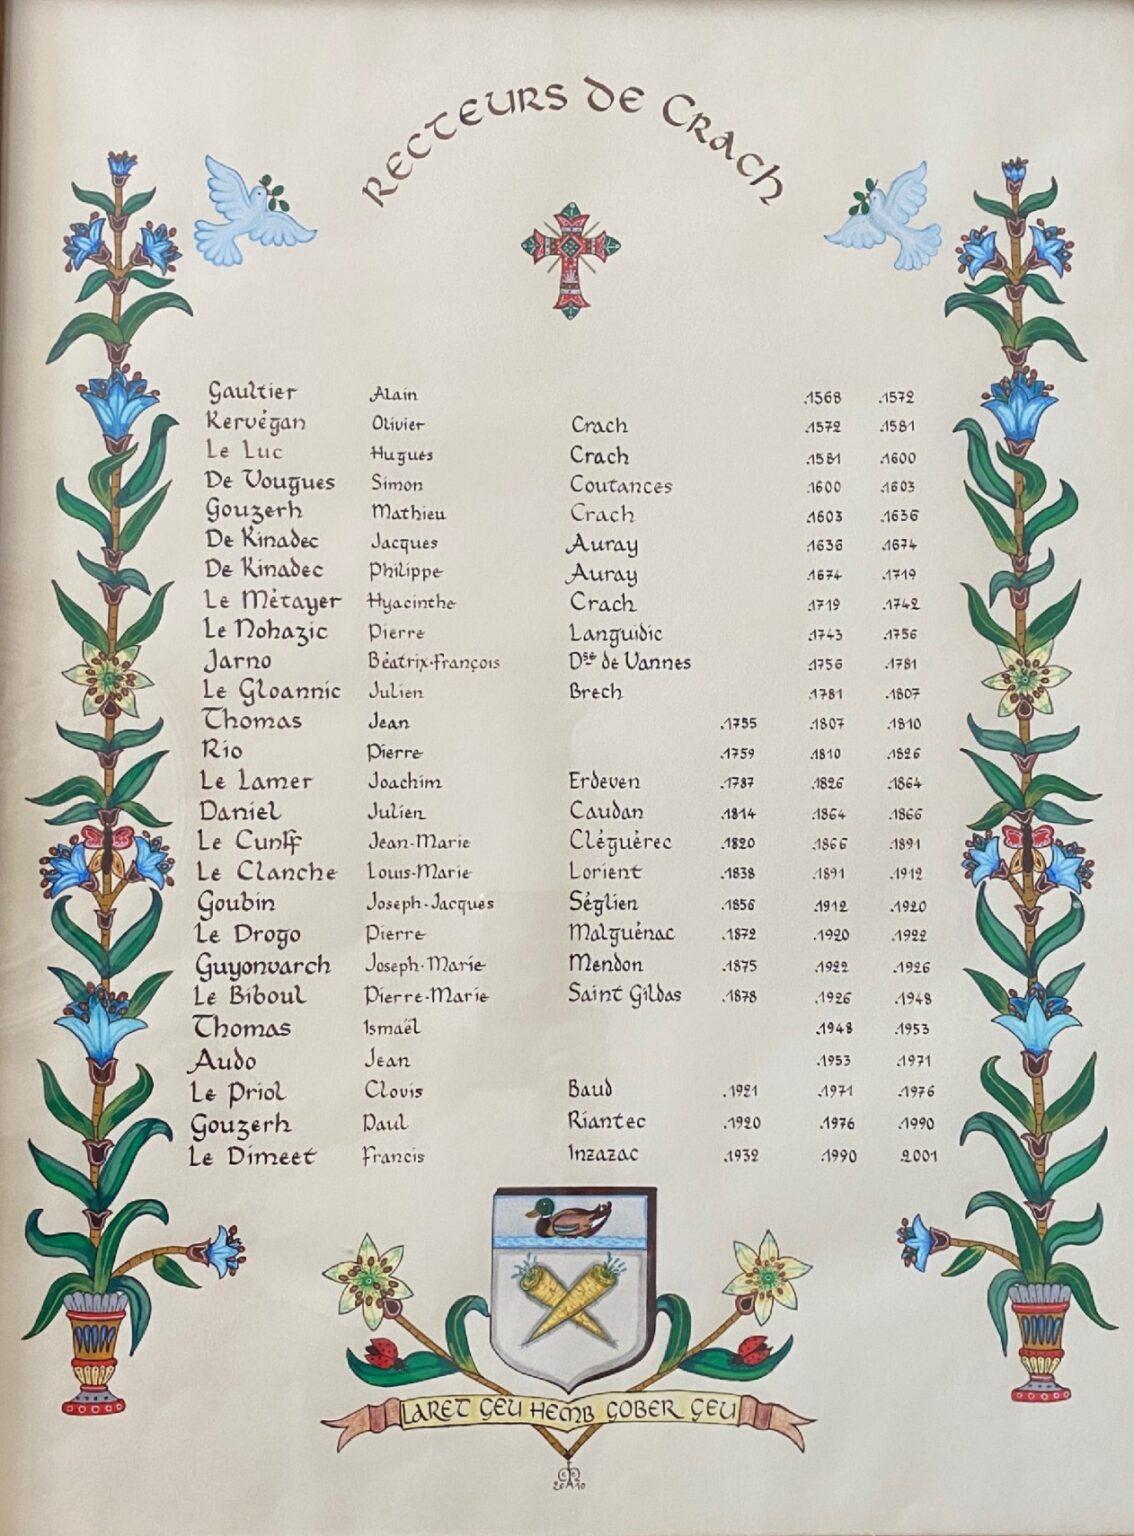 RECTEURS DE CRACH
Gaultier Alain .1568 .1572
Kervégan Olivier Crach .1572 .1581
Le Luc Hugues Crach .1581 .1600
De Vougues Simon Coutances .1600 .1603
Gouzerh Mathieu Crach .1603 .1636
De Kinadec Jacques Auray .1636 .1674
De Kinadec Philippe Auray .1674 .1719
Le Métayer Hyacinthe Crach .1719 .1742
Le Nohazic Pierre Languidic .1743 .1756
Jarno Béatrix-François Dsé de Vannes .1756 .1781
Le Gloannic Julien Brech .1781 .1807
Thomas Jean .1755 .1807 .1810
Rio Pierre .1759 .1810 .1826
Le Lamer Joachim Erdeven .1787 .1826 .1864
Daniel Julien Caudan .1814 .1864 .1866
Le Cunff Jean-Marie Cléguérec .1820 .1866 .1891
Le Clanche Louis-Marie Lorient .1838 .1891 .1912
Goubin Joseph-Jacques Séglien .1856 .1912 .1920
Le Drogo Pierre Malguénac .1872 .1920 .1922
Guyonvarch Joseph-Marie Mendon .1875 .1922 .1926
Le Biboul Pierre-Marie Saint Gildas .1878 .1926 .1948
Thomas Ismaël .1948 .1953
Audo Jean .1953 .1971
Le Priol Clovis Baud .1921 .1971 .1976
Gouzerh Paul Riantec .1920 .1976 .1990
Le Dimeet Francis Inzazac .1932 .1990 .2001
LARET GEU HEMB GOBER GEU
2010